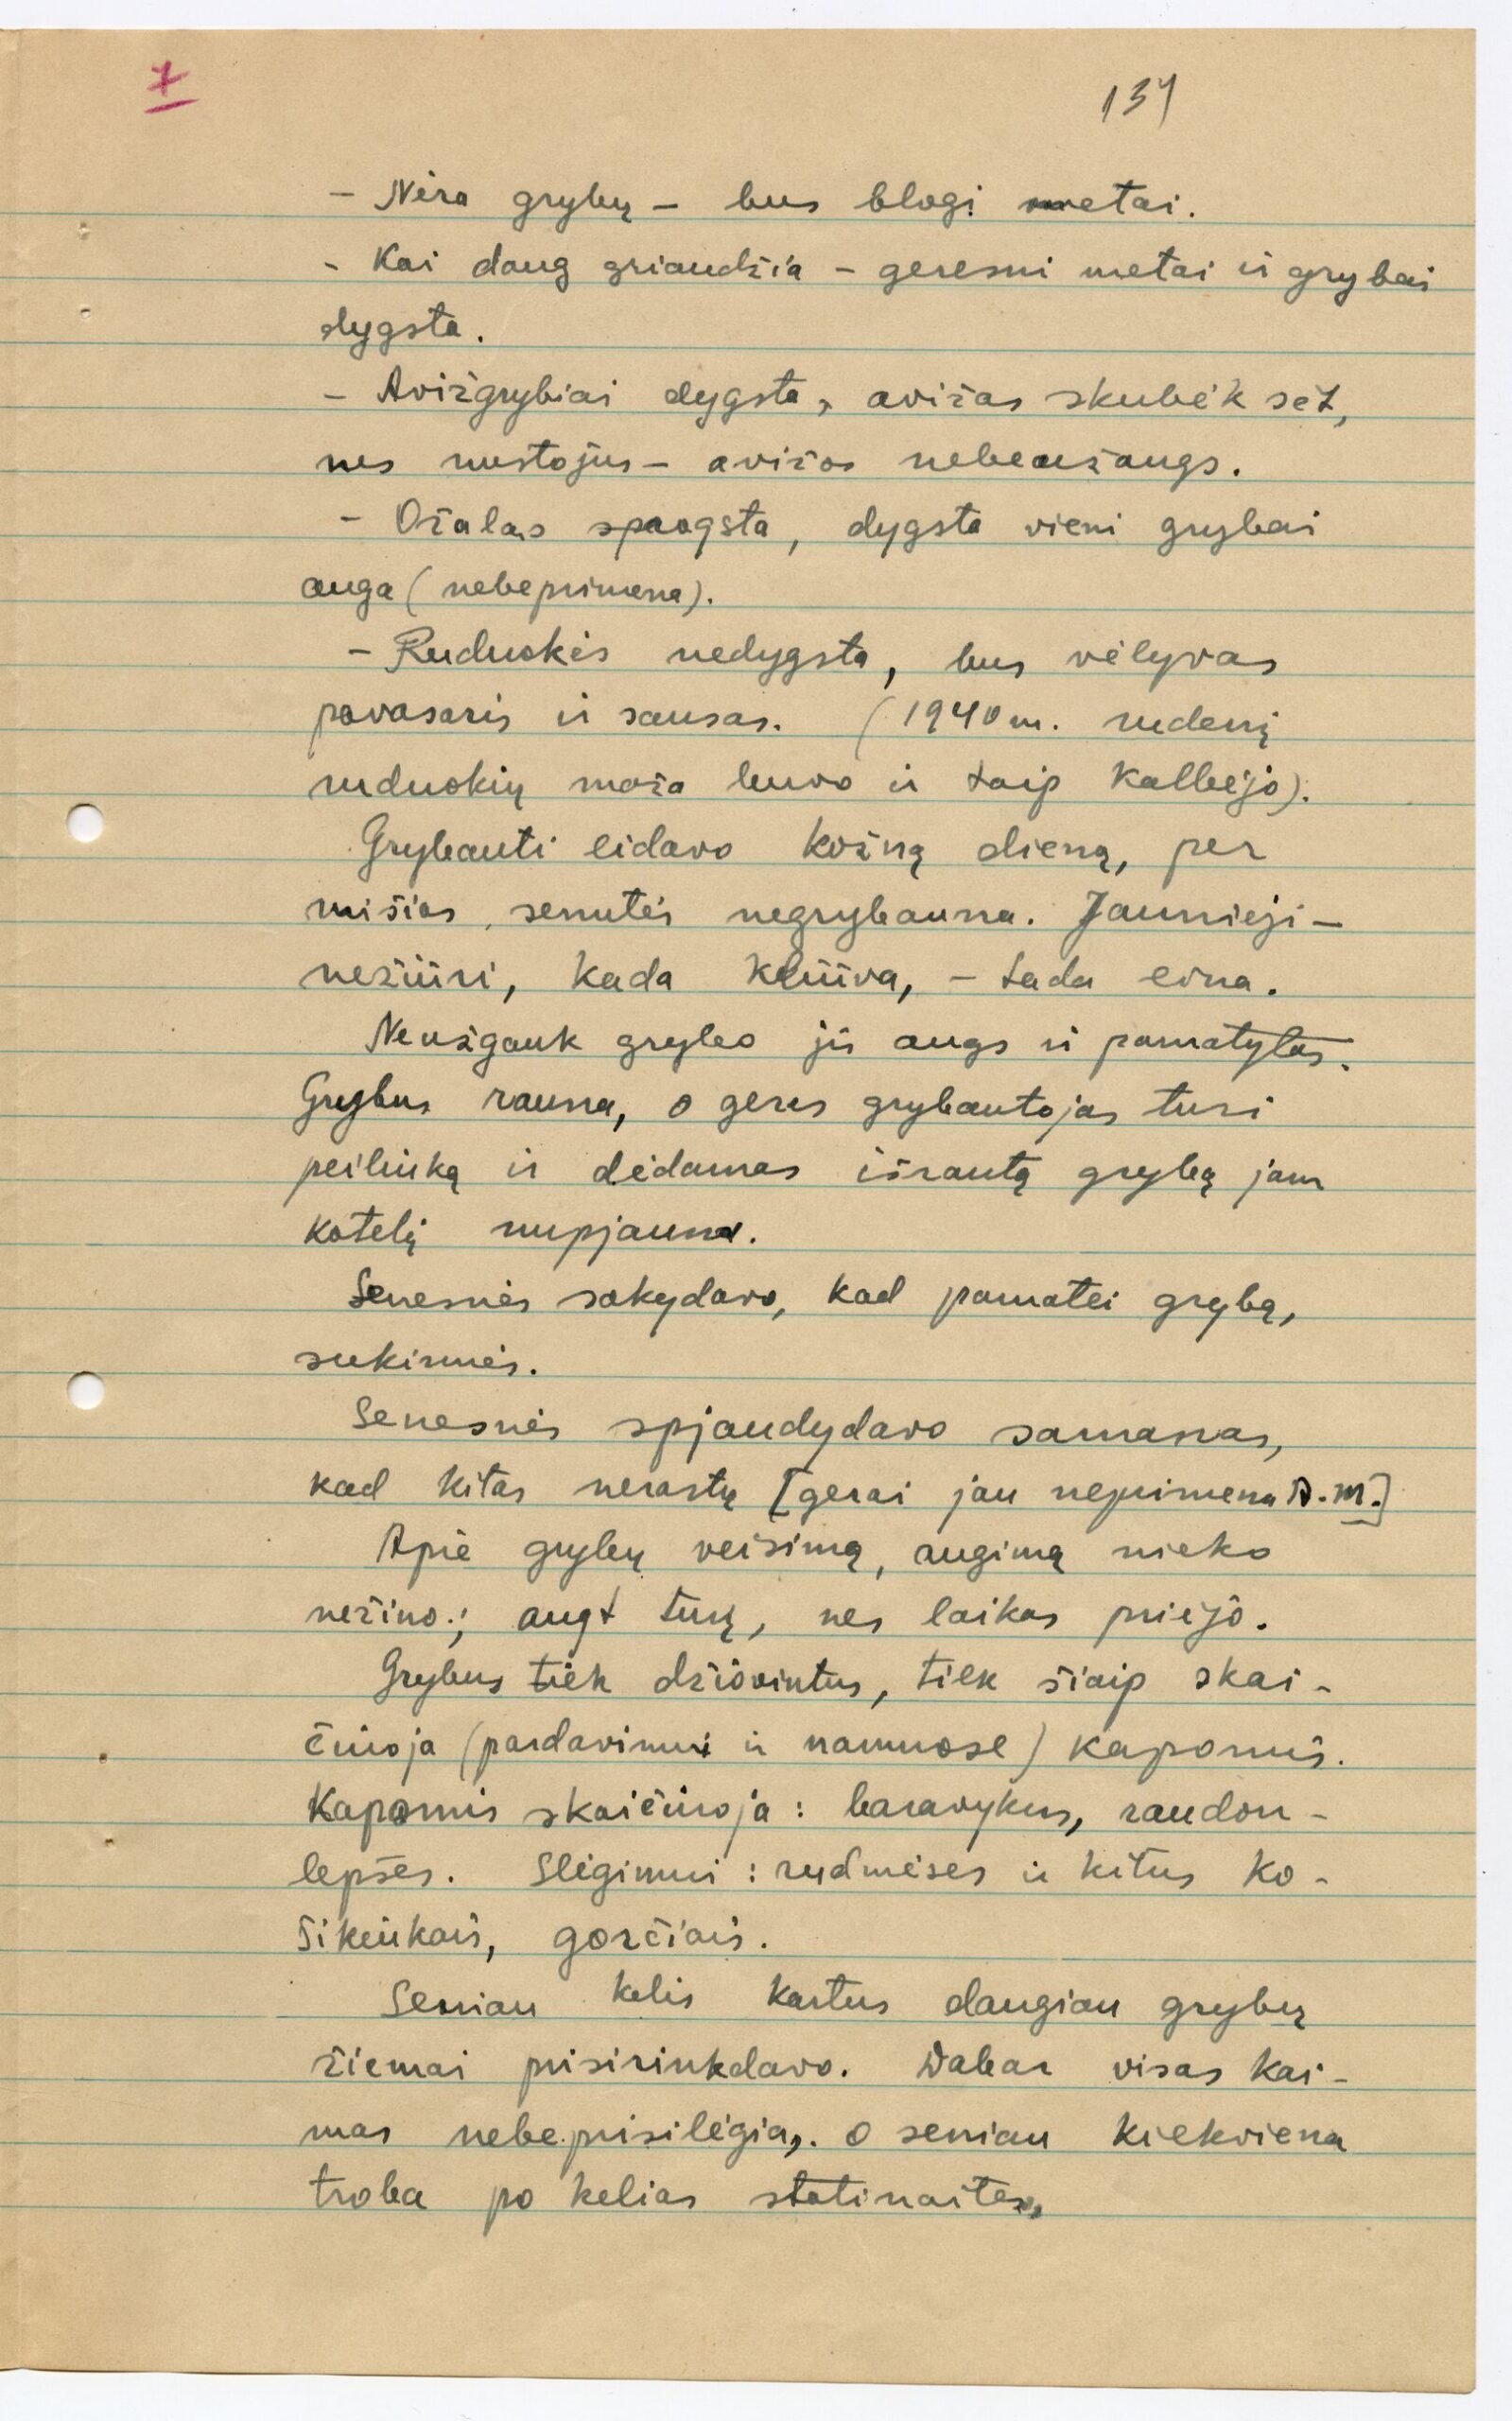 7
137
- Nėra grybų - bus blogi metai.
- Kai daug griaudžia - geresni metai ir grybai
dygsta.
- Avižgrybiai dygsta, avižas skubėk sėt,
nes nustojus - avižos nebeužaugs.
- Ožalas sprogsta, dygsta vieni grybai
auga (nebeprimena).
- Ruduokės nedygsta, bus vėlyvas
pavasaris ir sausas. (1940 m. rudenį
ruduokių maža buvo ir taip kalbėjo).
Grybauti eidavo kožną dieną, per
mišias senutės negrybauna. Jaunieji -
nežiūri, kada kliūva, - tada eina.
Neužgauk grybo jis augs ir pamatytas.
Grybus rauna, o geras grybautojas turi
peiliuką ir dėdamas išrautą grybą jam
kotelį nupjauna.
Senesnės sakydavo, kad pamatei grybą,
sukirmės.
Senesnės spjaudydavo samanas,
kad kitas nerastų [gerai jau neprimena A.M.]
Apie grybų veisimą, augimą nieko
nežino.; augt turį, nes laikas priėjo.
Grybus tiek džiovintus, tiek šiaip skai-
čiuoja (pardavimui ir namuose) kapomis.
Kapomis skaičiuoja: baravykus, raudon-
lepšes. Slėgimui: rudmėses ir kitus ko-
šikėukais, gorčiais.
Seniau kelis kartus daugiau grybų
žiemai prisirinkdavo. Dabar visas kai-
mas nebeprisilėgia,. o seniau kiekviena
troba po kelias statinaites,